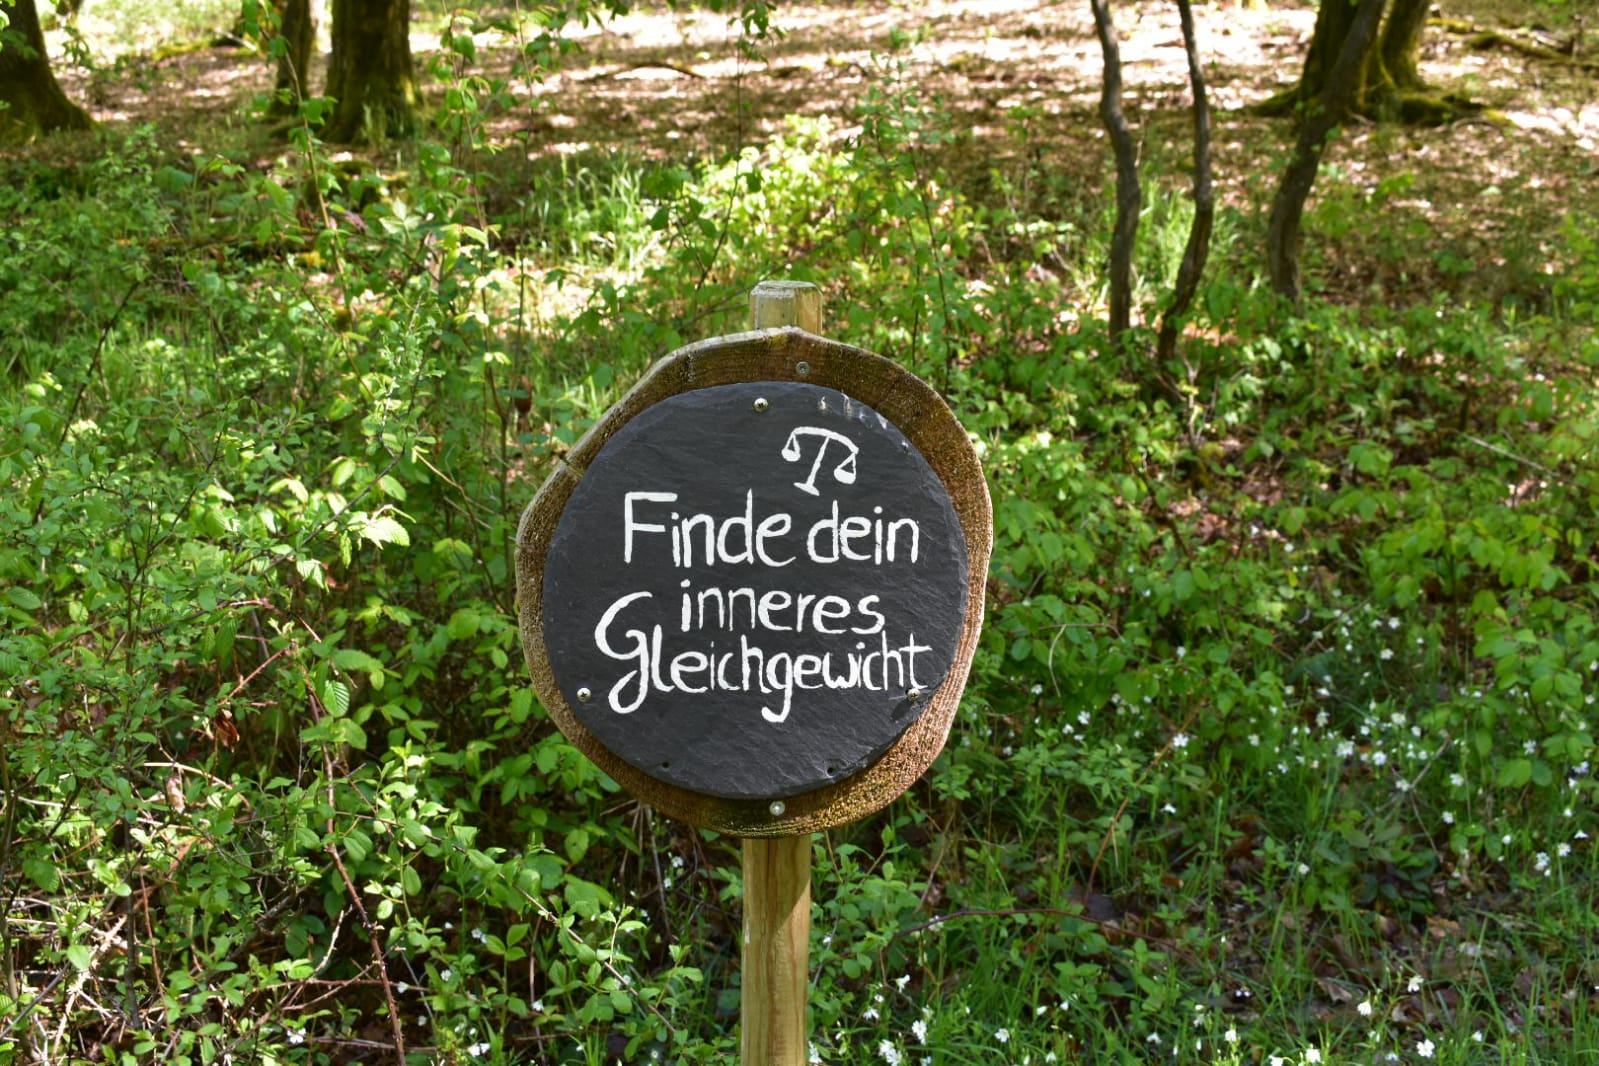 Finde dein
inneres
Gleichgewicht